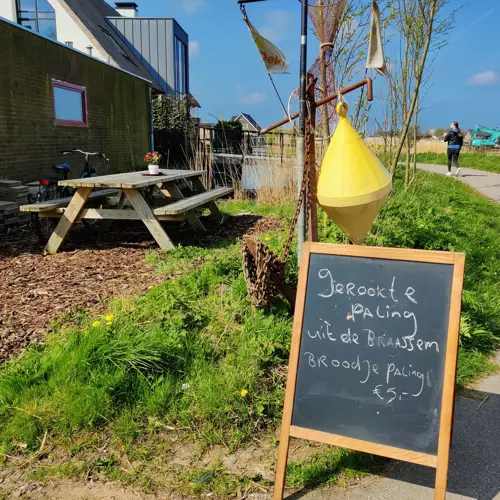 gerookte
paling
uit de BRAASSEM
BROODJE PALING
€5,-